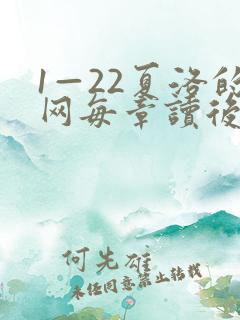 1—22夏洛的
网每章讀後
何先雄
未经同意禁止转载